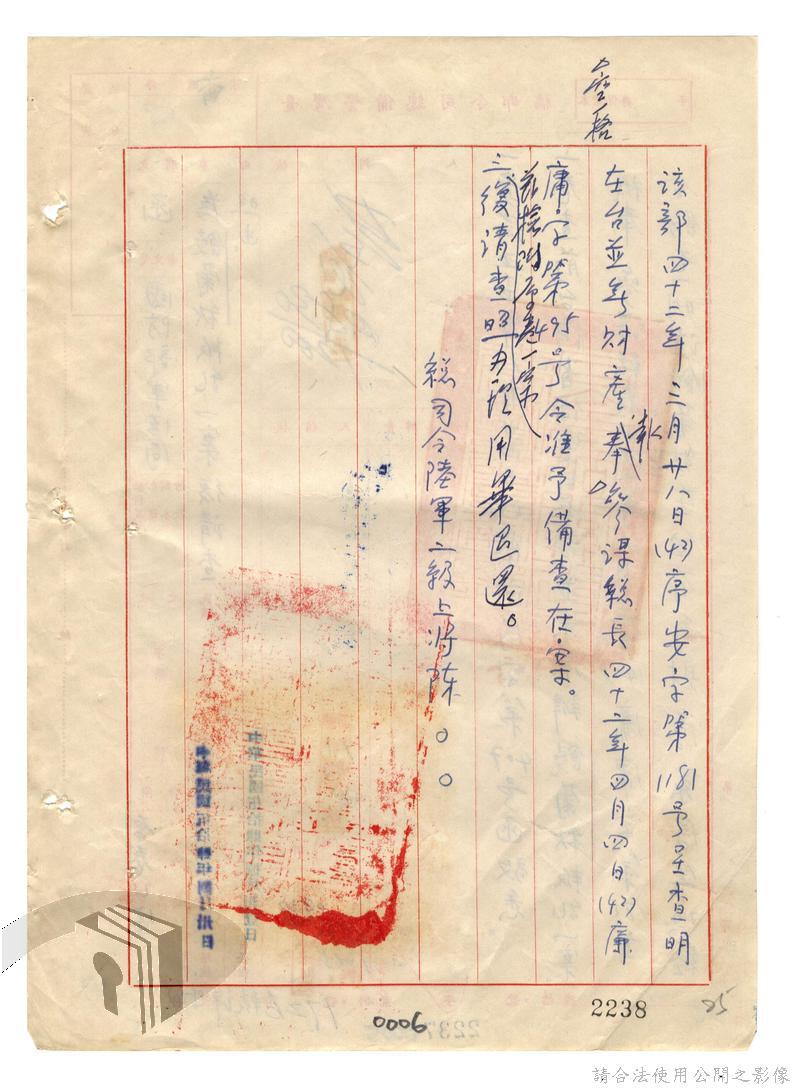 空格
該部四十二年三月廿八日(42)序安字第1181號呈查明
在台並無財產報奉參謀總長四十二年四月四日(42)廉
庸字第495号令准予備查在案。
茲檢附原卷一宗
三、復請查照办理用畢退還。
總司令陸軍二級上將陈○○
2238
85
0006
請合法使用公開之影像